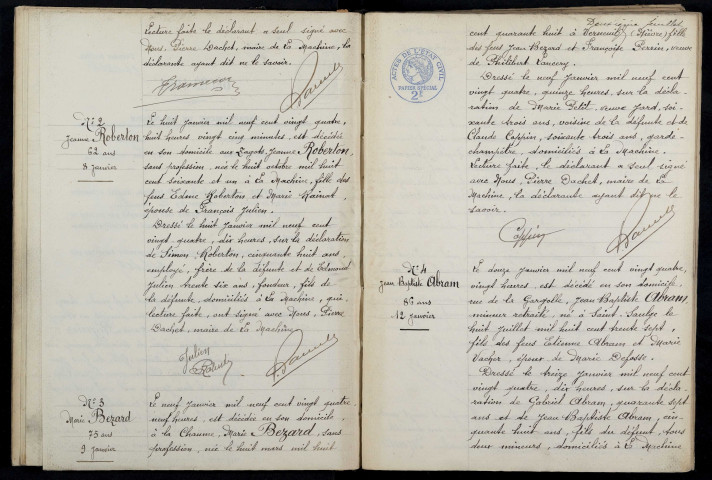 Lecture faite le déclarant a seul signé avec
Nous, Pierre Dachet, maire de La Machine, la
déclarante ayant dit ne le savoir.
N° 2
Jeanne Roberton
62 ans
8 janvier
Le huit Janvier mil neuf cent vingt quatre,
huit heures vingt cinq minutes, est décédée
en son domicile aux Zagots Jeanne Roberton,
sans profession, née le huit octobre mil huit
cent soixante et un à La Machine, fille des
feus Edme Roberton et Marie Rainat,
épouse de François Julien.
Dressé le huit Janvier mil neuf cent
vingt quatre, dix heures, sur la déclaration
de Simon Roberton, cinquante huit ans,
employé, frère de la défunte et de Edmond
Julien trente six ans, fondeur, fils de
la défunte, domiciliés à La Machine, qui,
lecture faite, ont signé avec Nous, Pierre
Dachet, maire de La Machine
Julien
N° 3
Marie Bezard
75 ans
9 Janvier
Le neuf Janvier mil neuf cent vingt quatre
neuf heures, est décédée en son domicile
à la Chaume, Marie Bezard, sans
profession, née le huit mars mil huit
Deuxième feuillet
cent quarante huit à Verneuil (Nièvre) fille
des feus Jean Bezard et Françoise Perrin, veuve
de Philibert
ACTES DE L'ETAT CIVIL
PAPIER SPECIAL
2F
Dressé le neuf Janvier mil neuf cent
vingt quatre, quinze heures, sur la décla-
ration de Marie Petit, veuve Jard, soi-
xante trois ans, voisine de la défunte et de
Claude Coppin, soixante trois ans, garde-
champêtre, domiciliés à La Machine.
Lecture faite, le déclarant a seul signé
avec Nous, Pierre Dachet, maire de La
Machine, la déclarante ayant dit ne le
savoir.
Coppin
N° 4
Jean Baptiste Abram
86 ans
12 Janvier
Le douze Janvier mil neuf cent vingt quatre,
vingt heures, est décédé en son domicile,
rue de la Gargolle, Jean Baptiste Abram,
mineur retraité, né à Saint-Saulge le
huit Juillet mil huit cent trente sept,
fils des feus Etienne Abram et Marie
Vacher, époux de Marie Defosse.
Dressé le treize Janvier mil neuf cent
vingt quatre, dix heures, sur la décla-
ration de Gabriel Abram, quarante sept
ans et de Jean Baptiste Abram, cin-
quante huit ans, fils du défunt, tous
deux mineurs, domiciliés à La Machine